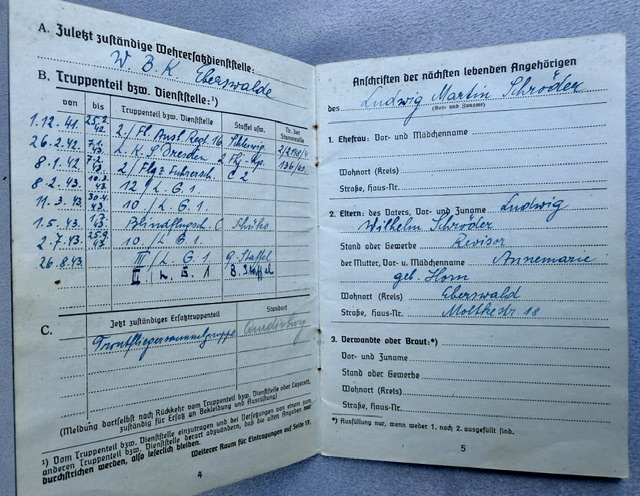 A. Zuletzt zuständige Wehrersatzdienststelle:
W B K Eberswalde
B. Truppenteil bzw. Dienststelle:¹)
von bis Truppenteil bzw. Dienststelle Staffel usw. Nr. der Stammrolle
1.12.41. 25.2.42. 2./Fl. Ausb. Regt. 16 Schleswig
26.2.42. L.K.S. Dresden
8.1.42
8.2.43. 12./L.G.1.
11.3.43 30.4.43. 10./L.G.1.
1.5.43. 1.7.43. Blindflugsch.
2.7.43. 25.8.43. 10./L.G.1.
26.8.43 III/L.G.1 9. Staffel
II./L.G.1 B. Staffel
C. Jetzt zuständiger Ersatztruppenteil Standort
Frontfliegersammelgruppe Quedlinburg
(Meldung dortselbst nach Rückkehr vom Truppenteil bzw. Dienststelle oder Lazarett,
zuständig für Ersatz an Bekleidung und Ausrüstung)
¹) Vom Truppenteil bzw. Dienststelle einzutragen und bei Versetzungen von einem zum
anderen Truppenteil bzw. Dienststelle derart abzuändern, daß die alten Angaben nur
durchstrichen werden, also leserlich bleiben.
Weiterer Raum für Eintragungen auf Seite 17.
4
Anschriften der nächsten lebenden Angehörigen
des Ludwig Martin Schröder
(Vor- und Zuname)
1. Ehefrau: Vor- und Mädchenname
Wohnort (Kreis)
Straße, Haus-Nr.
2. Eltern: des Vaters, Vor- und Zuname Ludwig
Wilhelm Schröder
Stand oder Gewerbe Revisor
der Mutter, Vor- u. Mädchenname Annemarie
geb. Horn
Wohnort (Kreis) Eberswald
Straße, Haus-Nr. Moltkestr 18
3. Verwandte oder Braut:*)
Vor- und Zuname
Stand oder Gewerbe
Wohnort (Kreis)
Straße, Haus-Nr.
*) Ausfüllung nur, wenn weder 1. noch 2. ausgefüllt sind.
5